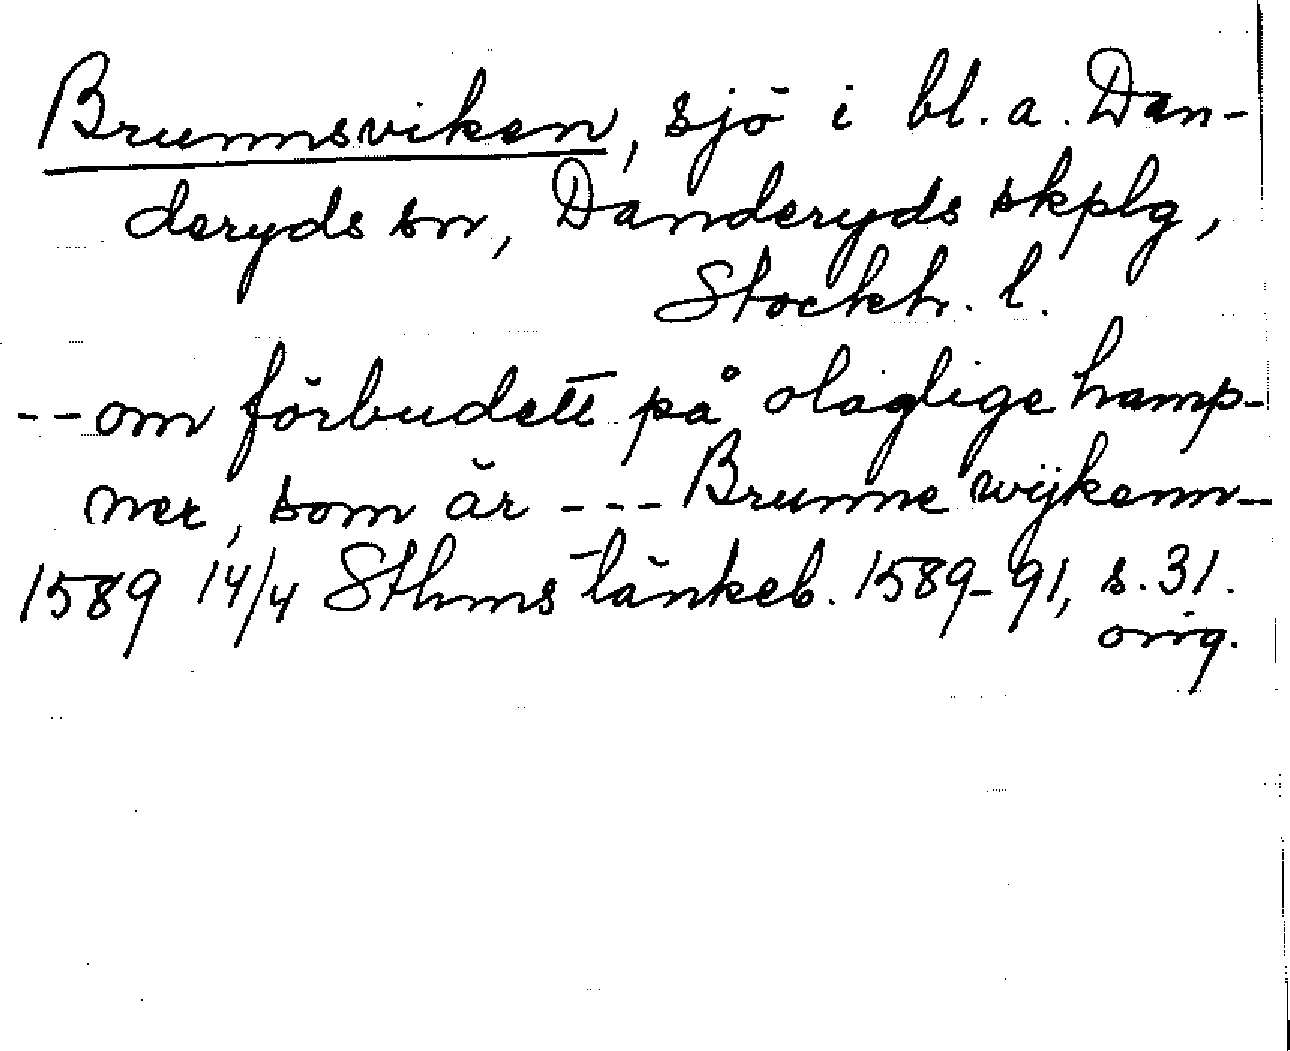 Brunnsviken, sjö i bl. a. Dan-
deryds sn, Danderyds skplg,
Stockh. l.
-- om förbudett på olaglige hamp-
ner, som är --- Brunne wijkenn -
1589 14/4 Sthms tänkeb. 1589-91, s. 31.
orig.